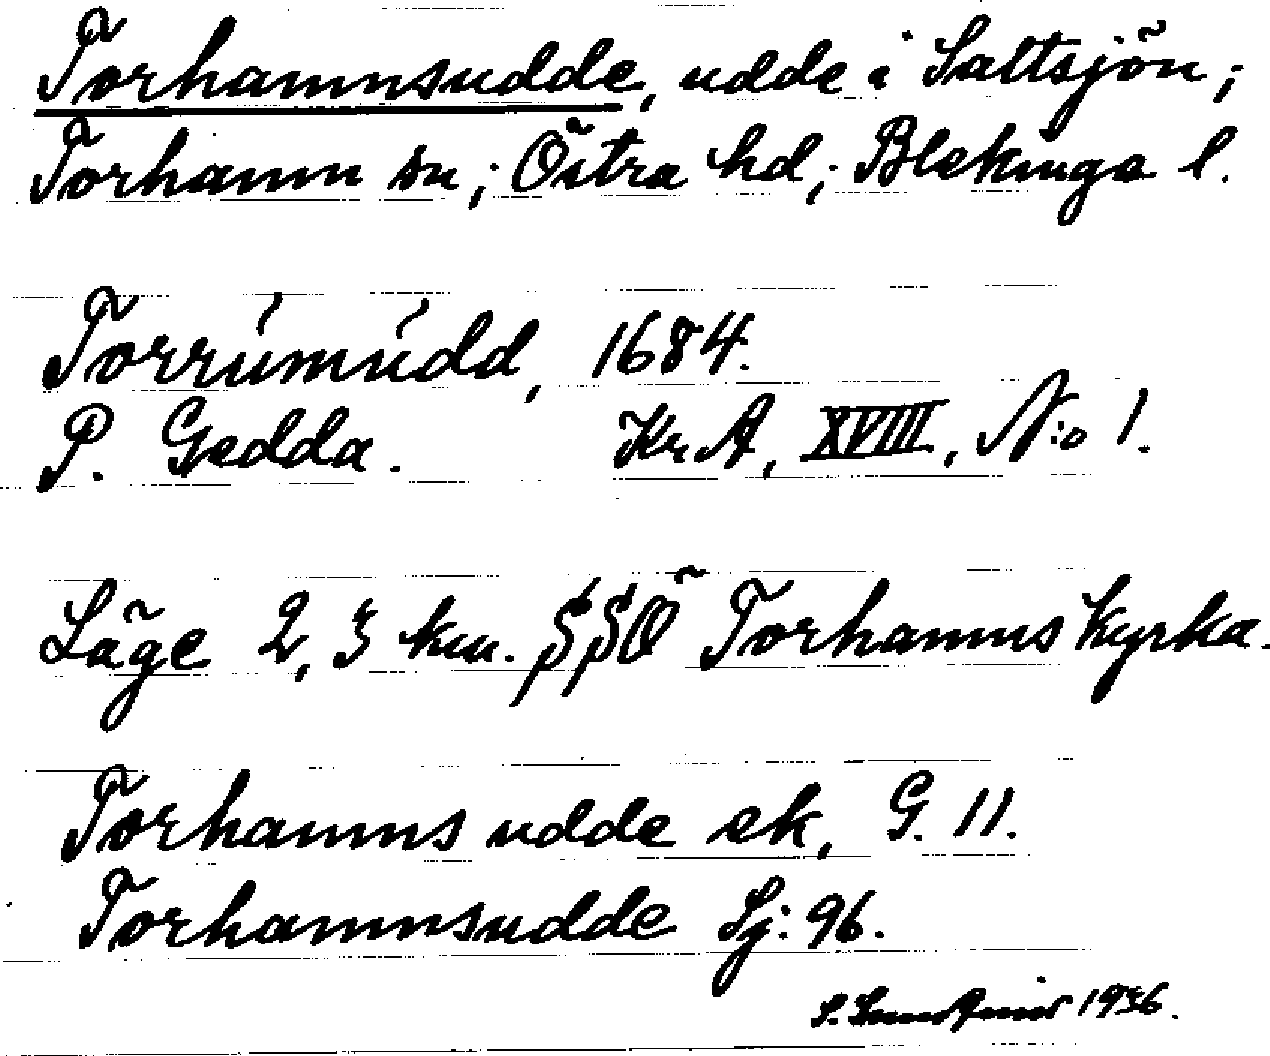 Torhamnsudde, udde i Saltsjön;
Torhamn sn; Östra hd; Blekinge l.
Torrúmúdd, 1684.
P. Gedda. KrA, XVIII, N:o 1.
Läge 2,3 km. SSÖ Torhamns kyrka.
Torhamns udde ek, G. 11.
Torhamnsudde Sj: 96.
S. 1936.